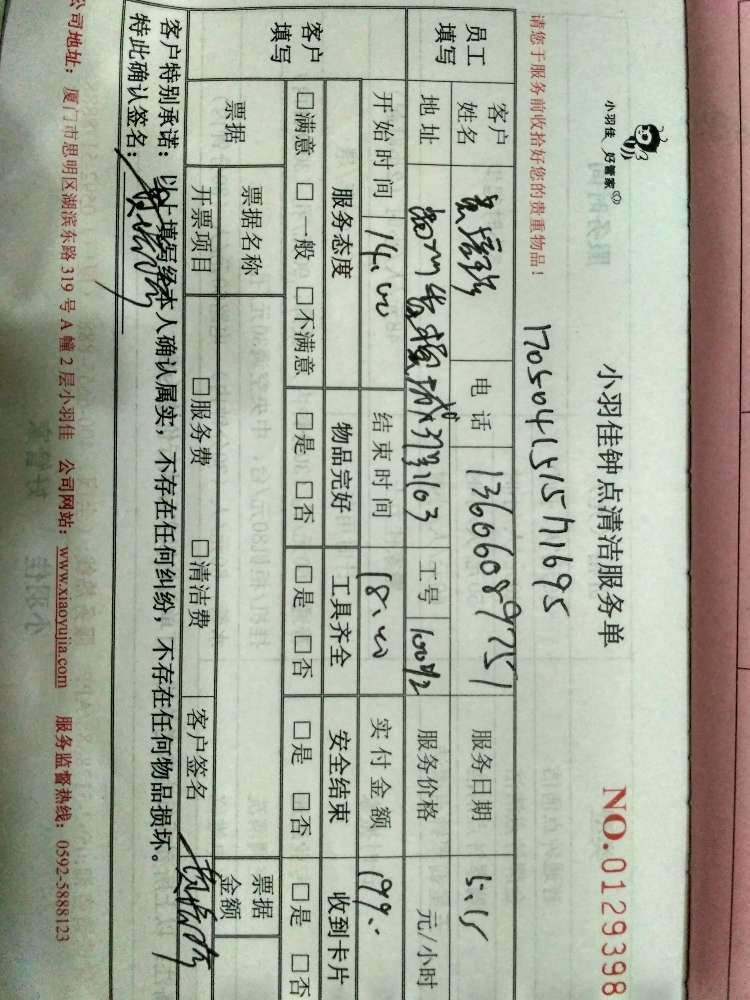 小羽佳 好管家
小羽佳钟点清洁服务单
NO.0129398
请您于服务前收拾好您的贵重物品！
1705041515711695
员工填写
客户姓名
电话 13606089751
服务日期 5.15
地址
工号
服务价格 元/小时
开始时间 14.00 结束时间 18.00 实付金额 199.-
客户填写
服务态度 物品完好 工具齐全 安全结束 收到卡片
□满意 □一般 □不满意 □是 □否 □是 □否 □是 □否 □是 □否
票据 票据名称 票据金额
开票项目 □服务费 □清洁费 客户签名
客户特别承诺：以上填写经本人确认属实，不存在任何纠纷，不存在任何物品损坏。
特此确认签名：
公司地址：厦门市思明区湖滨东路 319 号 A 幢 2 层小羽佳 公司网站：www.xiaoyujia.com 服务监督热线：0592-5888123